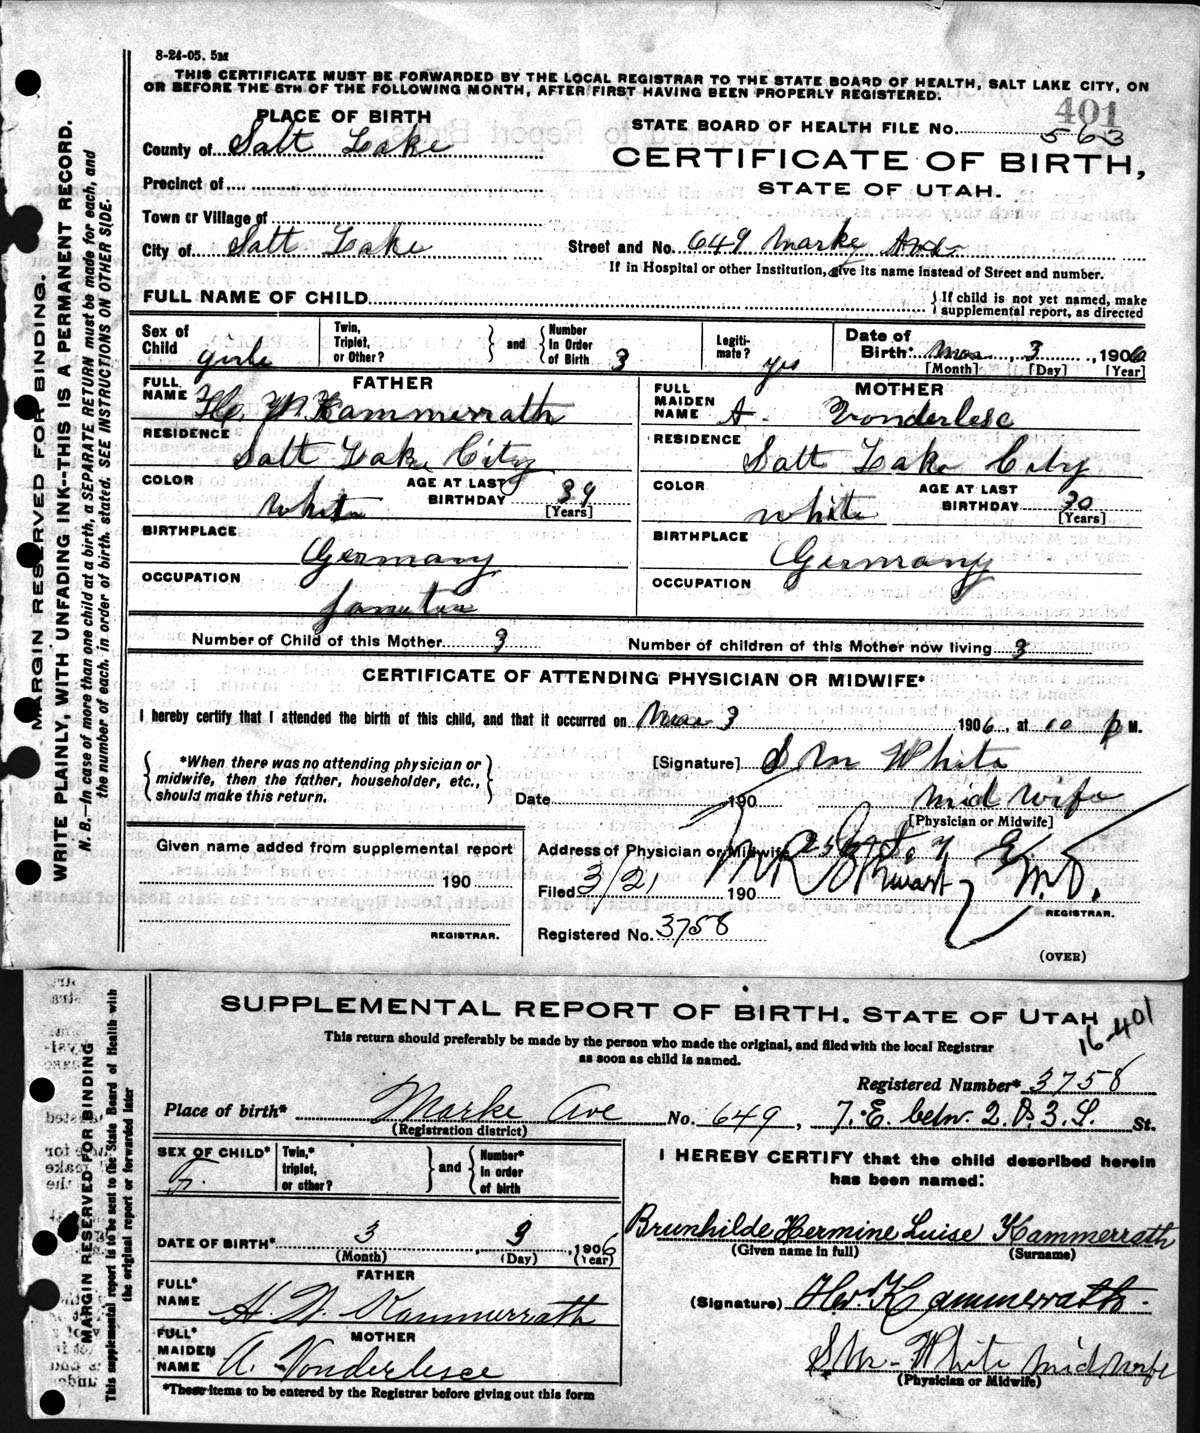 8-24-05. 5M
THIS CERTIFICATE MUST BE FORWARDED BY THE LOCAL REGISTRAR TO THE STATE BOARD OF HEALTH, SALT LAKE CITY, ON
OR BEFORE THE 5TH OF THE FOLLOWING MONTH, AFTER FIRST HAVING BEEN PROPERLY REGISTERED.
401
PLACE OF BIRTH
STATE BOARD OF HEALTH FILE No. 563
County of Salt Lake
CERTIFICATE OF BIRTH,
Precinct of
STATE OF UTAH.
Town or Village of
City of Salt Lake
Street and No. 649 Marke Ave
If in Hospital or other Institution, give its name instead of Street and number.
FULL NAME OF CHILD
{If child is not yet named, make
supplemental report, as directed
Sex of Child girle
Twin, Triplet, or Other?
and
Number In Order of Birth 3
Legitimate? yes
Date of Birth: Mar 3, 1906
[Month] [Day] [Year]
FATHER
FULL NAME H. W. Kammerrath
RESIDENCE
Salt Lake City
COLOR white
AGE AT LAST BIRTHDAY 39
[Years]
BIRTHPLACE
Germany
OCCUPATION
MOTHER
FULL MAIDEN NAME A. Vonderlese
RESIDENCE
Salt Lake City
COLOR white
AGE AT LAST BIRTHDAY 30
[Years]
BIRTHPLACE
Germany
OCCUPATION
Number of Child of this Mother 3
Number of children of this Mother now living 3
CERTIFICATE OF ATTENDING PHYSICIAN OR MIDWIFE*
I hereby certify that I attended the birth of this child, and that it occurred on Mar 3 1906, at 10 P M.
{*When there was no attending physician or
midwife, then the father, householder, etc.,
should make this return.}
[Signature] S M White
Date 190
Mid wife
[Physician or Midwife]
Given name added from supplemental report
190
REGISTRAR.
Address of Physician or Midwife
Filed 3/21 190
M.D.
REGISTRAR.
Registered No. 3758
(OVER)
MARGIN RESERVED FOR BINDING.
WRITE PLAINLY, WITH UNFADING INK--THIS IS A PERMANENT RECORD.
N. B.--In case of more than one child at a birth, a SEPARATE RETURN must be made for each, and
the number of each, in order of birth, stated. SEE INSTRUCTIONS ON OTHER SIDE.
SUPPLEMENTAL REPORT OF BIRTH. STATE OF UTAH
16-401
This return should preferably be made by the person who made the original, and filed with the local Registrar
as soon as child is named.
Registered Number* 3758
Place of birth* Marke Ave No. 649, 7. E. betw. 2. & 3. S. St.
(Registration district)
SEX OF CHILD* F.
Twin,* triplet, or other?
and
Number* In order of birth
I HEREBY CERTIFY that the child described herein
has been named:
Brunhilde Hermine Luise Kammerrath
(Given name in full) (Surname)
DATE OF BIRTH* 3 3, 1906
(Month) (Day) (Year)
FATHER
FULL* NAME H. W. Kammerrath
(Signature) Kammerrath.
MOTHER
FULL* MAIDEN NAME A. Vonderlese
S M White Midwife
(Physician or Midwife)
*These items to be entered by the Registrar before giving out this form
MARGIN RESERVED FOR BINDING
This supplemental report is to be sent to the State Board of Health with
the original report or forwarded later